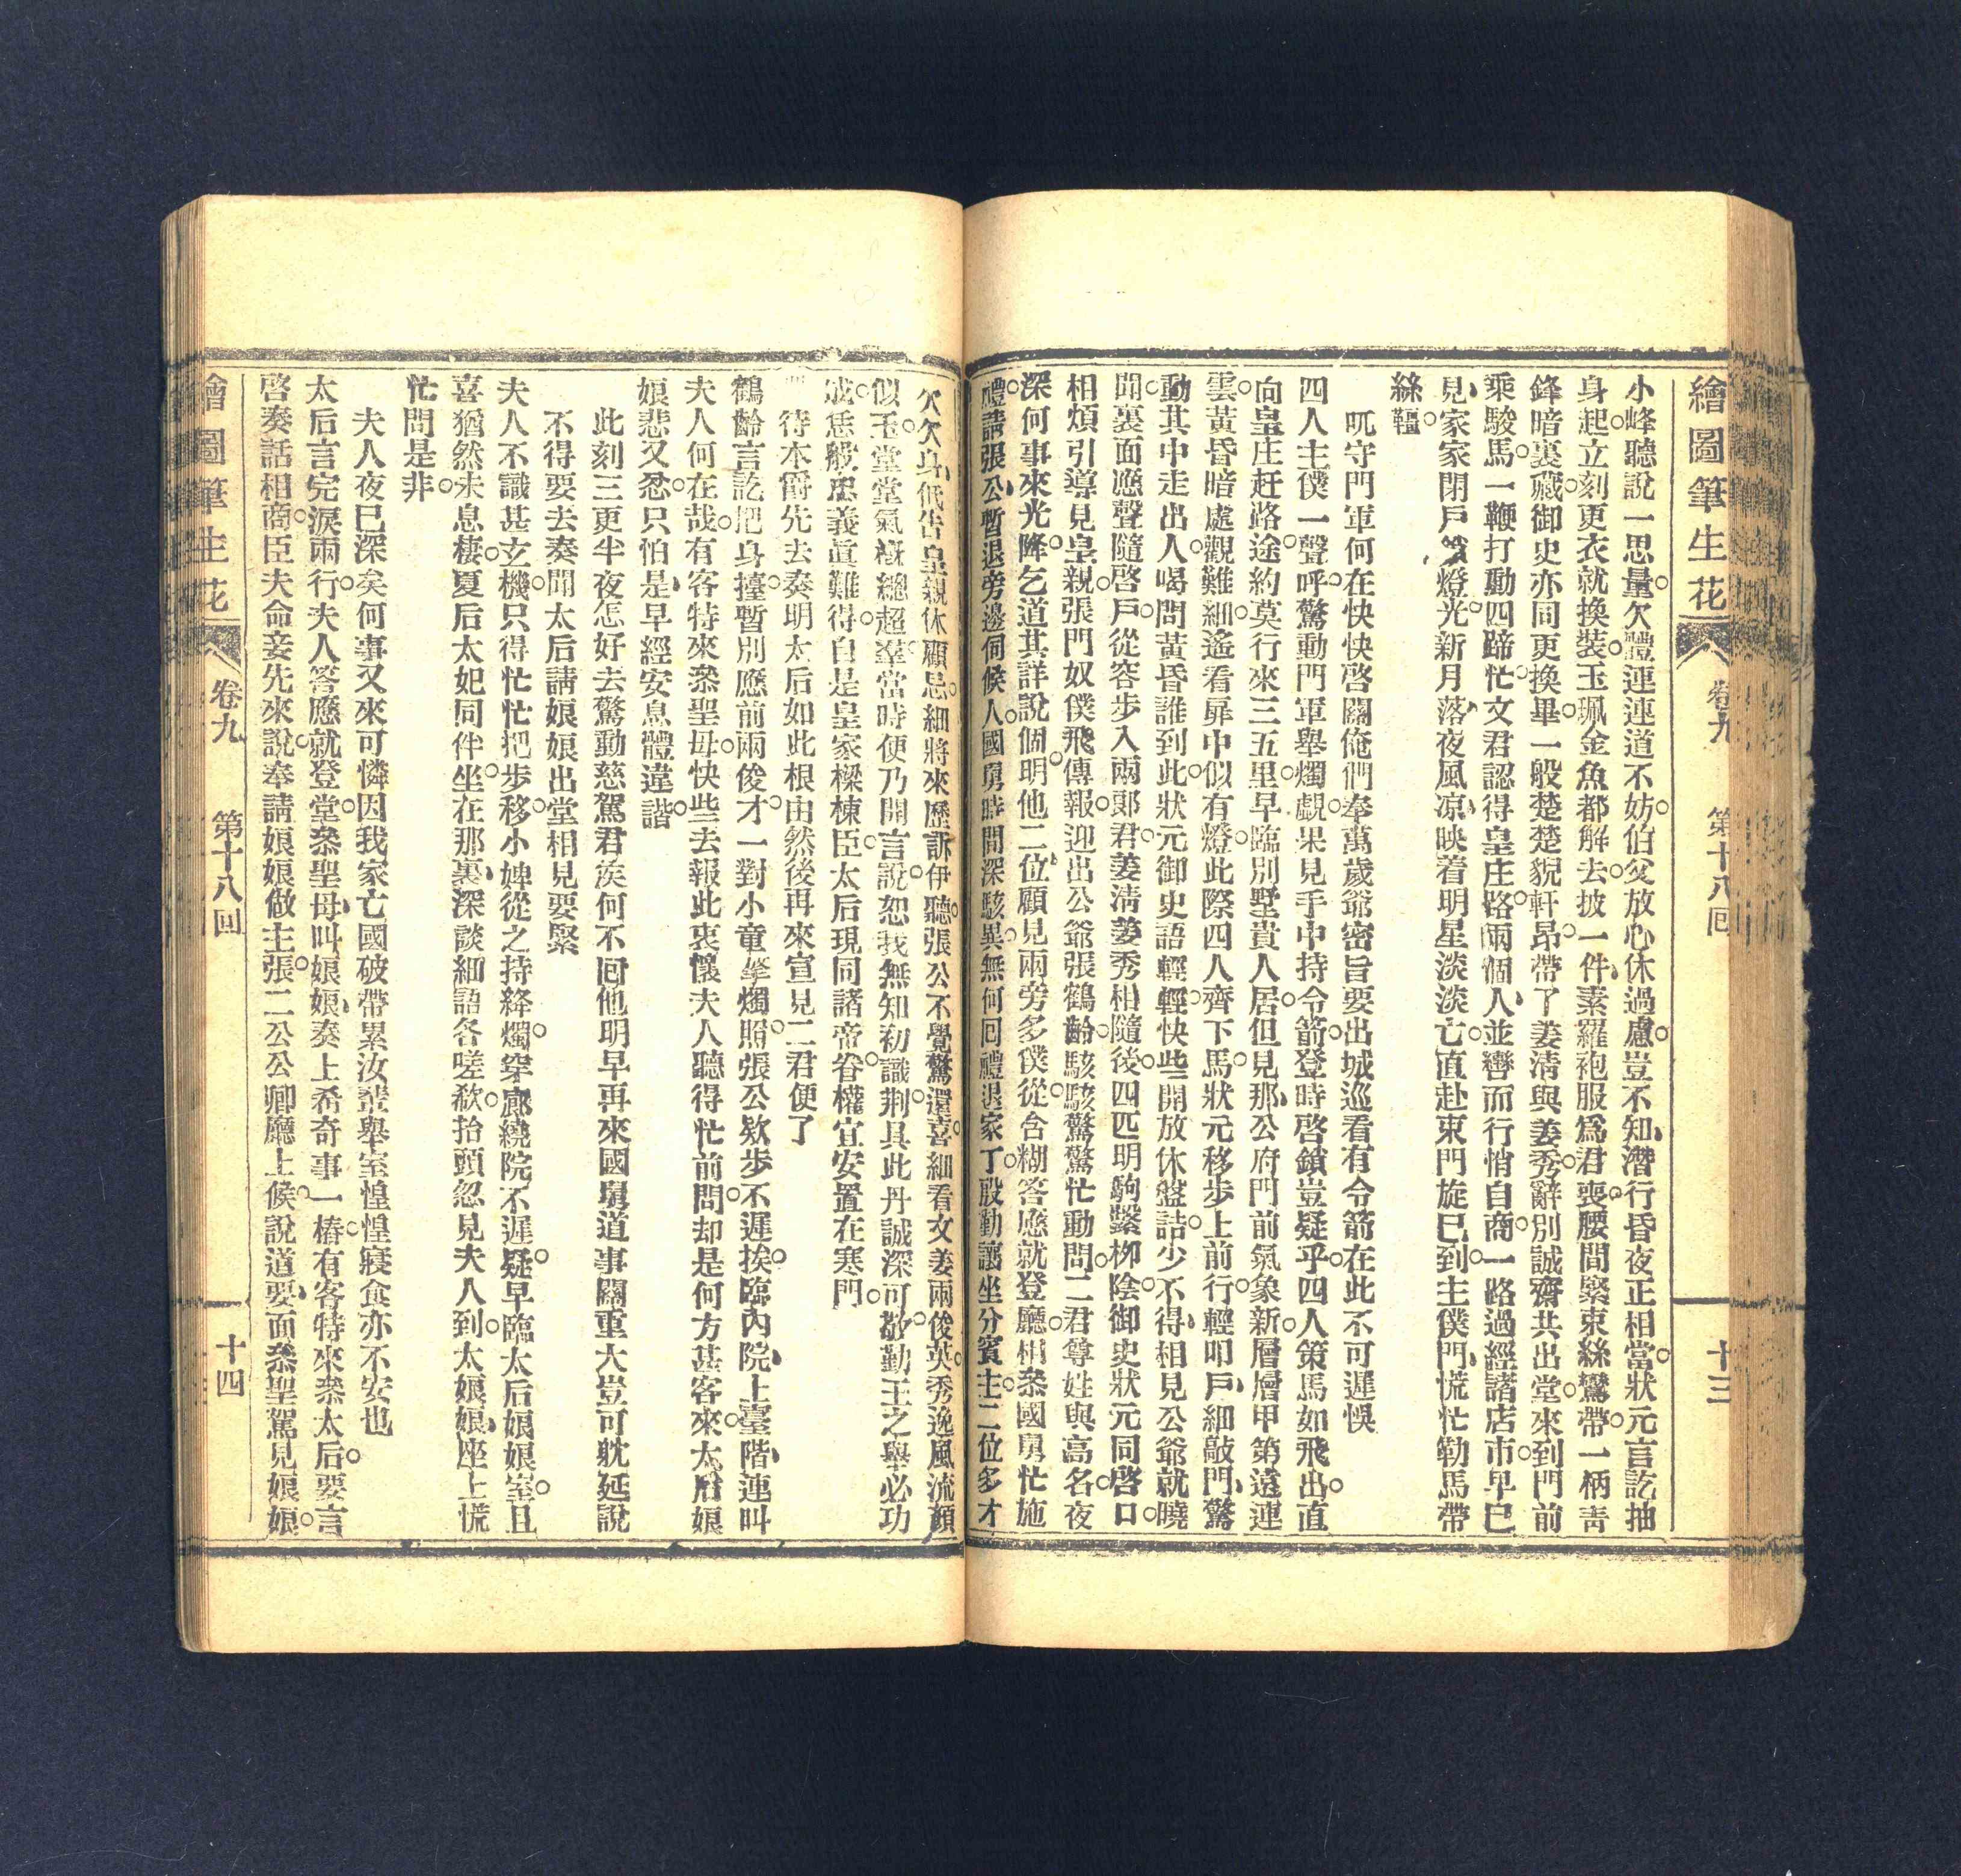 繪圖筆生花 卷九 第十八回 十三
小峰聽說一思量。欠禮連連道不妨。伯父放心休過慮。豈不知、潛行昏夜正相當。狀元言訖抽
身起。立刻更衣就換裝。玉珮金魚都解去。披一件、素羅袍服爲君喪。腰間緊束絲鸞帶。一柄靑
鋒暗裏藏。御史亦同更換畢。一般楚楚貌軒昂。帶了姜淸與姜秀。辭別誠齋共出堂。來到門前
乘駿馬。一鞭打動四蹄忙。文君認得皇庄路。兩個人、並轡而行悄自商。一路過經諸店市。早已
見、家家閉戶燈光。新月落、夜風凉、映着明星淡淡亡。直赴東門旋已到。主僕門、慌忙勒馬帶
絲韁。
呒守門軍何在快快啓關俺們奉萬歲爺密旨要出城巡看有令箭在此不可遲悞
四人主僕一聲呼。驚動門軍舉燭覷。果見手中持令箭。登時啓鎖豈疑乎。四人策馬如飛出。直
向皇庄赶路途。約莫行來三五里。早臨別墅貴人居。但見那、公府門前氣象新。層層甲第遠連
雲。黃昏暗處觀難細。遙看扉中似有燈。此際四人齊下馬。狀元移步上前行。輕叩戶、細敲門、驚
動其中走出人。喝問黃昏誰到此。狀元御史語輕輕。快些開放休盤詰。少不得、相見公爺就曉
聞。裏面應聲隨啓戶。從容步入兩郞君。姜淸姜秀相隨後。四匹明駒繫柳陰。御史狀元同啓口。
相煩引導見皇親。張門奴僕飛傳報。迎出公爺張鶴齡。駭駭驚驚忙動問。二君尊姓與高名。夜
深何事來光降。乞道其詳說個明。他二位、顧見兩旁多僕從。含糊答應就登廳。相叅國舅忙施
禮。請張公、暫退旁邊伺候人。國舅時間深駭異。無何囘禮退家丁。殷勤讓坐分賓主。二位多才
欠欠身、低告皇親休顧忌。細將來歷訴伊聽。張公不覺驚還喜。細看文姜兩俊英。秀逸風流顏
似玉。堂堂氣槪總超羣。當時便乃開言說。恕我無知初識荆。具此丹誠深可敬。勤王之舉必功
成。恁般忠義眞難得。自是皇家樑棟臣。太后現同諸帝眷。權宜安置在寒門
待本爵先去奏明太后如此根由然後再來宣見二君便了
鶴齡言訖把身擡。暫別應前兩俊才。一對小童擎燭照。張公欵步不遲挨。臨內院、上臺階、連叫
夫人何在哉。有客特來叅聖母。快些去報此衷懷。夫人聽得忙前問。却是何方甚客來。太后娘
娘悲又忿。只怕是、早經安息體違諧。
此刻三更半夜怎好去驚動慈駕君矦何不囘他明早再來國舅道事關重大豈可躭延說
不得要去奏聞太后請娘娘出堂相見要緊
夫人不識甚玄機。只得忙忙把步移。小婢從之持絳燭。穿廊繞院不遲疑。早臨太后娘娘室。且
喜猶然未息棲。夏后太妃同伴坐。在那裏、深談細語各嗟欷。抬頭忽見夫人到。太娘娘、座上慌
忙問是非。
夫人夜已深矣何事又來可憐因我家亡國破帶累汝輩舉室惶惶寢食亦不安也
太后言完淚兩行。夫人答應就登堂。叅聖母、叫娘娘、奏上希奇事一樁。有客特來叅太后。要言
啓奏話相商。臣夫命妾先來說。奉請娘娘做主張。二公公卿廳上候。說道要、面叅聖駕見娘娘。
繪圖筆生花 卷九 第十八回 十四